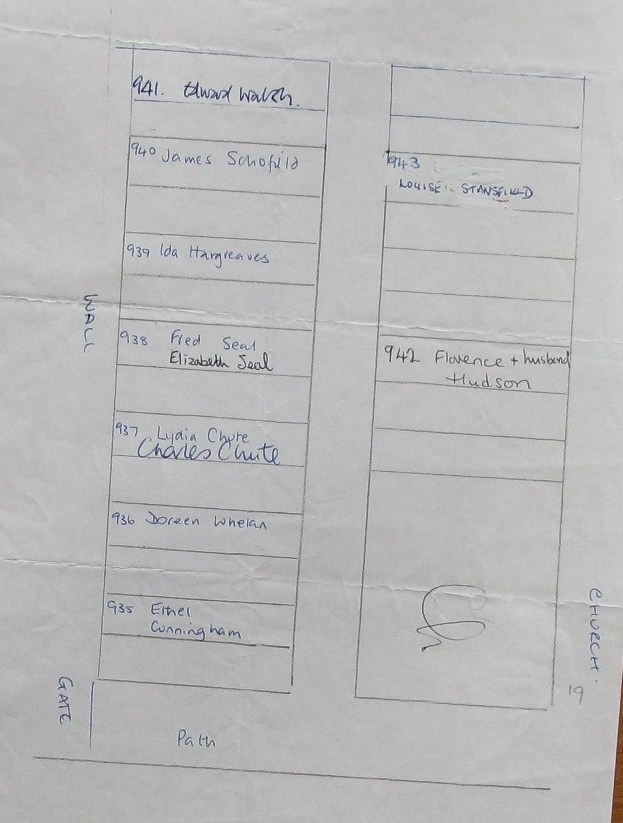 941. Edward Walsh.
940 James Schofield
939 Ida Hargreaves
WALL
938 Fred Seal
Elizabeth Seal
937 Lydia Chute
Charles Chute
936 Doreen Whelan
935 Ethel
Cunningham
GATE
Path
943
LOUISE STANSFIELD
942 Florence + husband
Hudson
CHURCH.
19